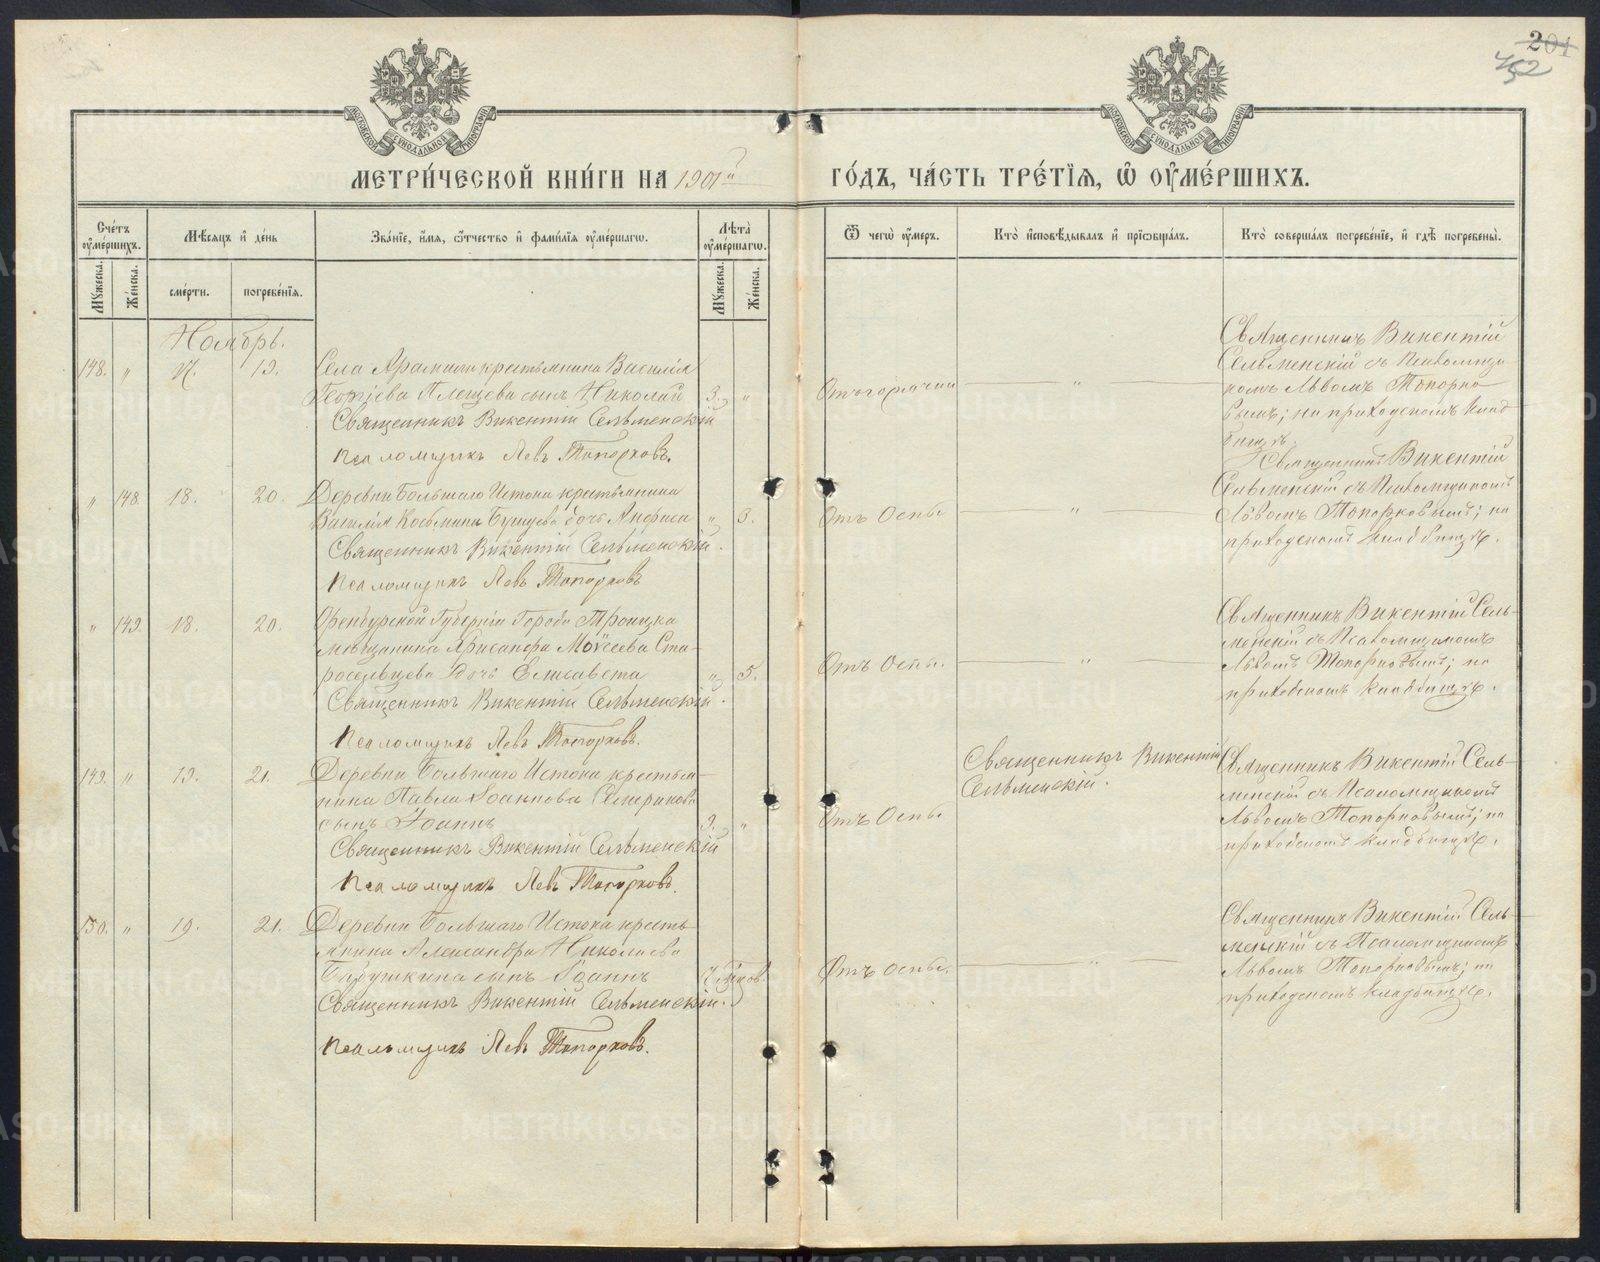 201
452
МОСКОВСКОЙ СѴНОДАЛЬНОЙ ТИПОГРАФІИ
МОСКОВСКОЙ СѴНОДАЛЬНОЙ ТИПОГРАФІИ
МЕТРИ́ЧЕСКОЙ КНИ́ГИ НА 1901й
ГО́ДЪ, ЧА́СТЬ ТРЕ́ТІѦ, Ѡ҆ ОУ҆МЕ́РШИХЪ.
Сче́тъ оу҆ме́ршихъ.
Мѣсяцъ и҆ де́нь
Зва́нїе, и҆́мя, ѻ҆́тчество и҆ фами́лїя оу҆ме́ршагѡ.
Лѣта̀ оу҆ме́ршагѡ.
Ѿ чегѡ̀ оу҆́меръ.
Кто̀ и҆сповѣ́дывалъ и҆ прїѡбща́лъ.
Кто̀ соверша́лъ погребе́нїе, и҆ гдѣ̀ погребены̀.
Мꙋ́жеска.
Же́нска.
сме́рти.
погребе́нїя.
Мꙋ́жеска.
Же́нска.
Ноябрь.
148. " 17. 19. Села Арамили крестьянина Василія
Георгіева Плещева сынъ Николай 3. "
Священникъ Викентій Сельменскій
Псаломщикъ Левъ Топорковъ.
Отъ горячки "
Священникъ Викентій
Сельменскій съ Псаломщи-
комъ Львомъ Топорко-
вымъ; на приходскомъ клад-
бищѣ.
" 148 18. 20. Деревни Большаго Истока крестьянина
Василія Косьмина дочь Анфиса " 3.
Священникъ Викентій Сельменскій.
Псаломщикъ Левъ Топорковъ
Отъ Оспы "
Священникъ Викентій
Сельменскій съ Псаломщикомъ
Львомъ Топорковымъ; на
приходскомъ кладбищѣ.
" 149. 18. 20. Оренбургской Губерніи Города Троицка
мѣщанина Хрисанфа Моѵсеева Ста-
росельцева дочь Елисавета " 5.
Священникъ Викентій Сельменскій.
Псаломщикъ Левъ Топорковъ.
Отъ Оспы. "
Священникъ Викентій Сель-
менскій съ Псаломщикомъ
Львомъ Топорковымъ; на
приходскомъ кладбищѣ.
149. " 19. 21. Деревни Большаго Истока крестья-
нина Павла Іоаннова
сынъ Іоаннъ 9. "
Священникъ Викентій Сельменскій
Псаломщикъ Левъ Топорковъ.
Отъ Оспы
Священникъ Викентій
Сельменскій.
Священникъ Викентій Сель-
менскій съ Псаломщикомъ
Львомъ Топорковымъ; на
приходскомъ кладбищѣ.
150. " 19. 21. Деревни Большаго Истока кресть-
янина Александра Николаева
Бабушкина сынъ Іоаннъ
Священникъ Викентій Сельменскій.
Псаломщикъ Левъ Топорковъ.
Отъ оспы. "
Священникъ Викентій Сель-
менскій съ Псаломщикомъ
Львомъ Топорковымъ; на
приходскомъ кладбищѣ.
METRIKI.GASO-URAL.RU